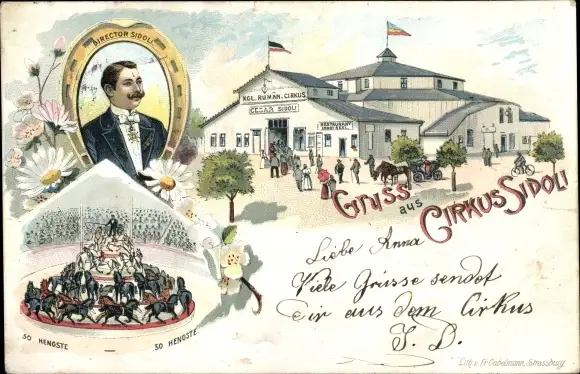 DIRECTOR SIDOLI
KGL. RUMÄN. CIRKUS.
CESAR SIDOLI
RESTAURANT
Gruss
aus
CIRKUS SIDOLI
Liebe Anna
Viele Grüsse sendet
Dir aus dem Cirkus
S. D.
50 HENGSTE — 50 HENGSTE
Lith. v. Fr. Gabelmann, Strassburg.